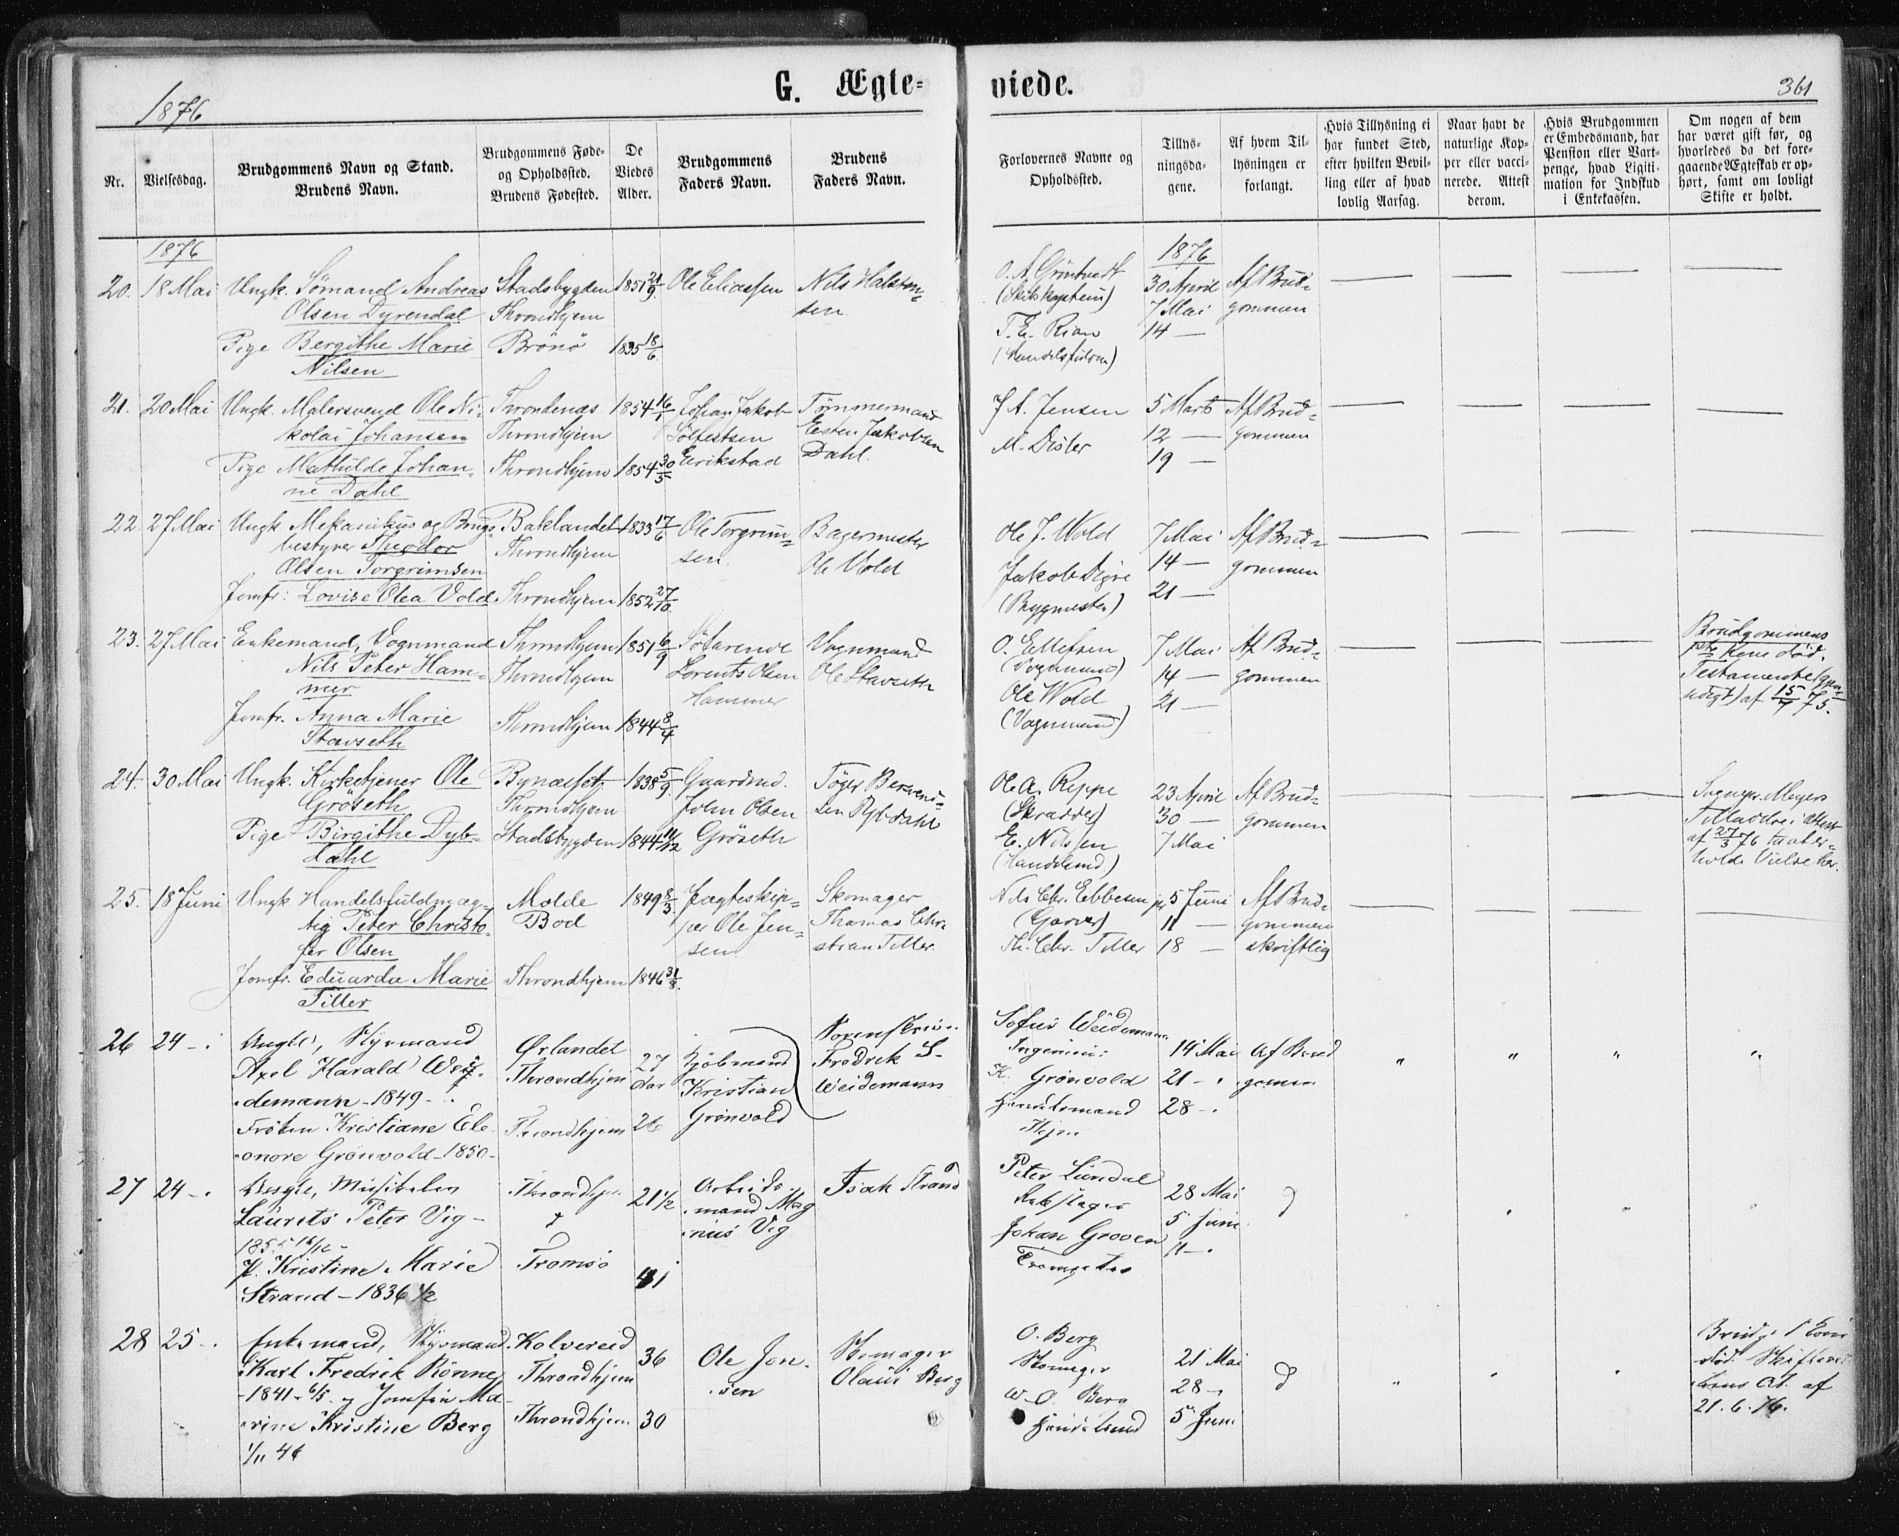 1876
G. Ægte-
viede.
361
Nr.
Vielsesdag.
Brudgommens Navn og Stand.
Brudens Navn.
Brudgommens Føde-
og Opholdssted.
Brudens Fødested.
De
Viedes
Alder.
Brudgommens
Faders Navn.
Brudens
Faders Navn.
Forlovernes Navne og
Opholdssted.
Tillys-
ningsda-
gene.
Af hvem Til-
lysningen er
forlangt.
Hvis Tillysning ei
har fundet Sted,
efter hvilken Bevil-
ling eller af hvad
lovlig Aarsag.
Naar havt de
naturlige Kop-
per eller vacci-
nerede. Attest
derom.
Hvis Brudgommen
er Embedsmand, har
Pension eller Vart-
penge, hvad Ligiti-
mation for Indskud
i Enkekassen.
Om nogen af dem
har været gift før, og
hvorledes da det fore-
gaaende Ægteskab er op-
hørt, samt om lovligt
Skifte er holdt.
1876
20. 18 Mai
Ungk. Sømand Andreas
Olsen Dyrendal
Pige Bergithe Marie
Nilsen
Stadsbygden
Throndhjem
Brønø
1851 21/9
1835 18/6
Ole Eliassen
Nils Halsten-
sen
O. A. Grüntvedt
(Skibskaptein)
T. E. Rian
1876
30 April
7 Mai
14 —
Af Brud-
gommen
21. 20 Mai
Ungk. Malersvend Ole Ni-
kolai Johansen
Pige Mathilde Johan-
ne Dahl
Throndenæs
Throndhjem
Throndhjem
1854 16/1
1854 30/5
Johan Jakob
Sølfestsen
Eerikstad
Tømmermand
Esten Jakobsen
Dahl.
J. A. Jensen
M. Dister
5 Marts
12 —
19 —
Af Brud-
gommen
22. 27 Mai
Ungk. Mekanikus og Brugs-
bestyrer Theodor
Olsen Torgrimsen
Jomfr: Lovise Olea Vold
Baklandet
Throndhjem
Throndhjem
1833 17/6
1852 27/10
Ole Torgrim-
sen.
Bagermester
Ole Vold
Ole J. Wold
Jakob Digre
(Bygmester)
7 Mai
14 —
21 —
Af Brud-
gommen
23. 27 Mai
Enkemand, Vognmand
Nils Peter Ham-
mer
Jomfr. Anna Marie
Stavseth
Throndhjem
Throndhjem
Throndhjem
1851 6/9
1844 8/4
Søfarende
Lorents Olsen
Hammer
Vognmand
Ole Stavseth
O. Ellefsen
(Vognmand)
Ole Wold
(Vognmand)
7 Mai
14 —
21 —
Af Brud-
gommen
Brudgommens
Kone død.
Testamente
af 15/7 75.
24. 30 Mai
Ungk. Kirketjener Ole
Grøseth
Pige Birgithe Dyb-
dahl
Bynæsset
Throndhjem
Stadsbygden
1838 5/9
1844 11/12
Gaardmd.
John Olsen
Grøseth
Tøger Berend-
sen Dybdahl
Ole A. Reppe
(Skrædder)
E. Nilssen
(Handelsmd)
23 April
30 —
7 Mai
Af Brud-
gommen
Sognepr. Meyers
Tilladelse i Attest
af 27/3 76 til at er-
holde Vielse her.
25. 18 Juni
Ungk. Handelsfuldmæg-
tig Peter Christo-
fer Olsen
Jomfr. Eduarda Marie
Tiller
Molde
Bod
Throndhjem
1849 8/3
1846 31/8
Jægteskip-
per Ole Jen-
sen
Skomager
Thomas Chri-
stian Tiller
Nils Chr. Ebbesen jr
(Garver)
Th. Chr. Tiller
5 Juni
11 —
18 —
Af Brud-
gommen
skriftlig
26 24 - .
Ungk., Styrmand
Axel Harald Wei-
demann - 1849 -
Frøken Kristiane Ele-
onore Grønvold - 1850 -
Ørlandet
Throndhjem
Throndhjem
27
Aar
26
Kjøbmand
Kristian
Grønvold
Sorenskriv.
Fredrik S-
Weidemann
Sofus Weidemann
Ingeniør
K. Grønvold
Handelsmand
14 Mai
21 - .
28 - .
Af Brud
gomm.
" " " "
27 24 - .
Ungk., Musikeleu
Laurits Peter Vig -
P. Kristine Marie
Strand - 1836 1/2
Throndhj.
Tromsø
21 1/2
41
Arbeids-
mand Mag
nus Vig
Isak Strand
Peter Lundal
Rebslager
Johan Grooven
28 Mai
5 Juni
11 - .
28 25 - .
Enkemand, Styrmand
Karl Fredrik Rønne
- 1841 - 6/5 - og Jomfru Ma-
rine Kristine Berg
1/11 46
Kolvereid
Throndhjem
Throndhjem
36
30
Ole Jen-
sen
Skomager
Olaus Berg
O. Berg
Skomager
W. O. Berg
Handelsmd
21 Mai
28 -
5 Juni
Brudg. 1 Kone
død. Skifteret-
tens At. af
21. 6. 76.